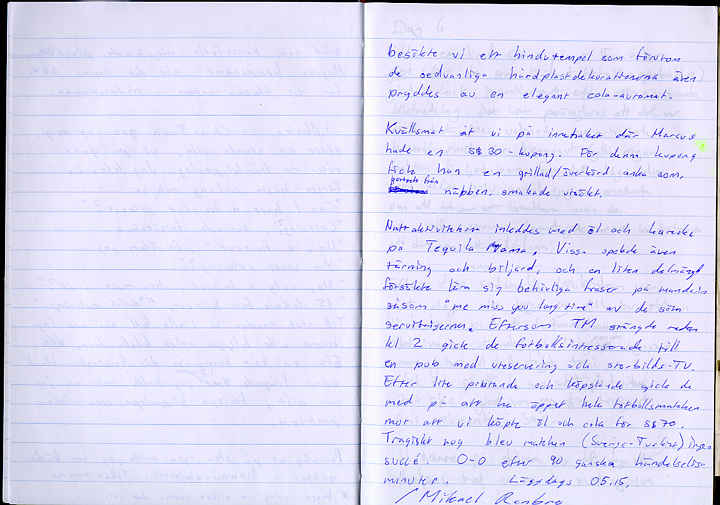 besökte vi ett hindutempel som förutom
de sedvanliga hårdplastdekorationerna även
pryddes av en elegant cola-automat.
Kvällsmat åt vi på innehaket där Marcus
hade en S$ 30-kupong. För denna kupong
fick han en grillad/överkörd anka som,
bortsett från
näbben, smakade utsökt.
Nattaktiviteterna inleddes med öl och karaoke
på Tequila Mama. Vissa spelade även
tärning och biljard, och en liten delmängd
försökte lära sig behövliga fraser på mandarin
såsom "me miss you long time" av de söta
servitriserna. Eftersom TM stängde redan
kl 2 gick de fotbollsintresserade till
en pub med uteservering och storbilds-TV.
Efter lite prutande och köpslående gick de
med på att ha öppet hela fotbollsmatchen
mot att vi köpte öl och cola för S$ 70.
Tragiskt nog blev matchen (Sverige-Turkiet) ingen
succé. 0-0 efter 90 ganska händelselösa
minuter. Läggdags 05.15.
/ Mikael